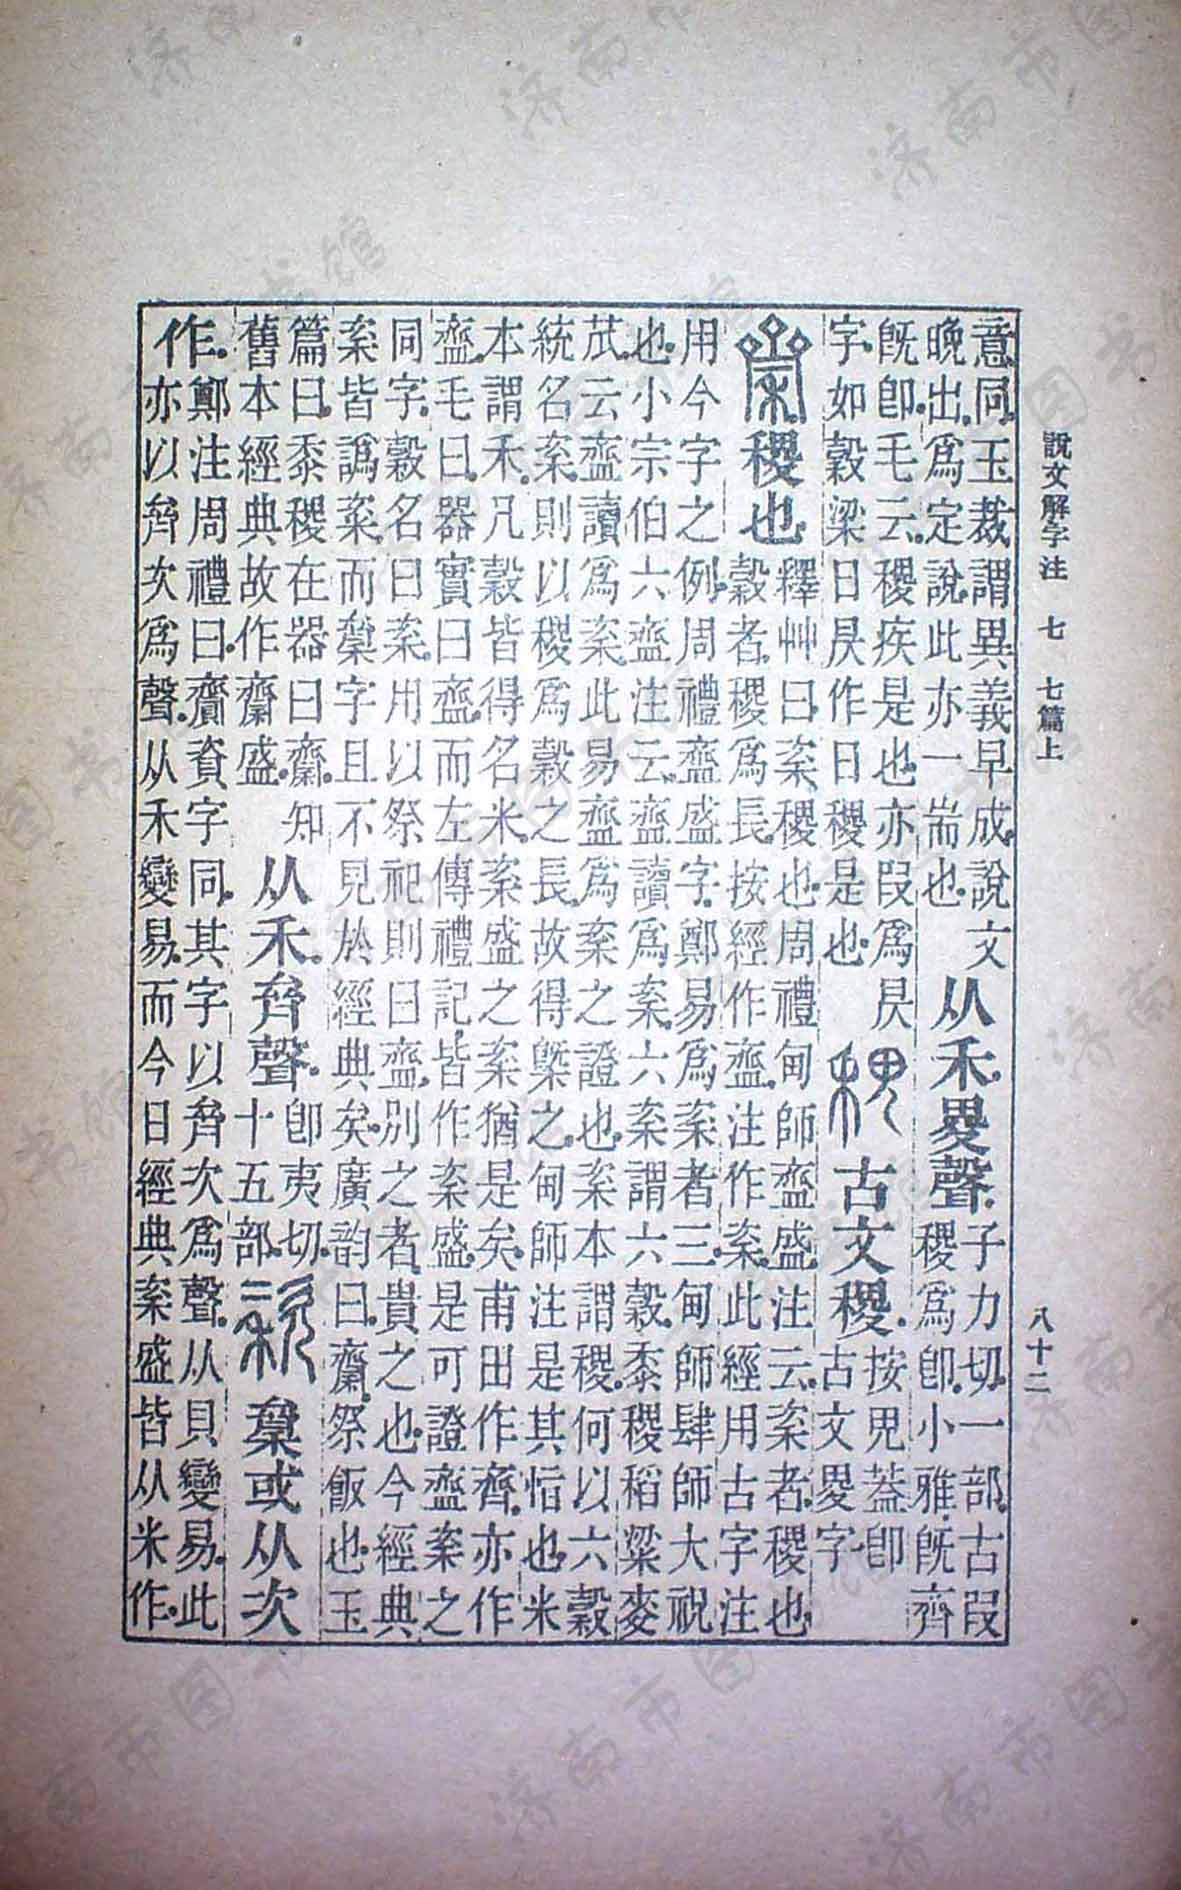 說文解字注 七 七篇上
八十二
意同。玉裁謂異義早成。說文
晚出。爲定說。此亦一耑也。
从禾。畟聲。
子力切。一部。古叚
稷爲卽。小雅。旣齊
旣卽。毛云。稷疾是也。亦叚爲昃
字。如穀梁日昃作日稷是也。
古文稷。
按皃蓋卽
古文畟字。
稷也。
釋艸曰。秶稷也。周禮甸師齍盛注云。秶者。稷也。
穀者。稷爲長。按經作齍。注作秶。此經用古字。注
用今字之例。周禮齍盛字。鄭易爲秶者三。甸師肆師大祝
也。小宗伯六齍注云。齍讀爲秶。六秶謂六穀。黍稷稻粱麥
苽。云齍讀爲秶。此易齍爲秶之證也。秶本謂稷。何以六穀
統名秶。則以稷爲穀之長。故得槩之。甸師注是其恉也。米
本謂禾。凡穀皆得名米。秶盛之秶猶是矣。甫田作齊。亦作
齍。毛曰。器實曰齍。而左傳禮記。皆作秶盛。是可證齍秶之
同字。穀名曰秶。用以祭祀則曰齍。別之者。貴之也。今經典
秶皆譌粢。而𪗉字且不見於經典矣。廣韵曰。𪗉。祭飯也。玉
篇曰。黍稷在器曰𪗉。知
舊本經典故作𪗉盛。
从禾。𠫼聲。
卽夷切。
十五部。
𪗉或从次
作。
鄭注周禮曰。齎資字同。其字以𠫼次爲聲。从貝變易。此
亦以𠫼次爲聲。从禾變易。而今日經典秶盛皆从米作。
济南市图书馆